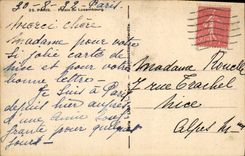 20-8-22-Paris.
PARIS. Palais du Luxembourg
Merci chère
Madame pour votre
jolie carte de
Nice et pour votre
bonne lettre.
Je suis à Paris
depuis hier auprès
d'une
pour quelques
jours -
Madame
7 rue Trachel
Nice
Alpes Mmes